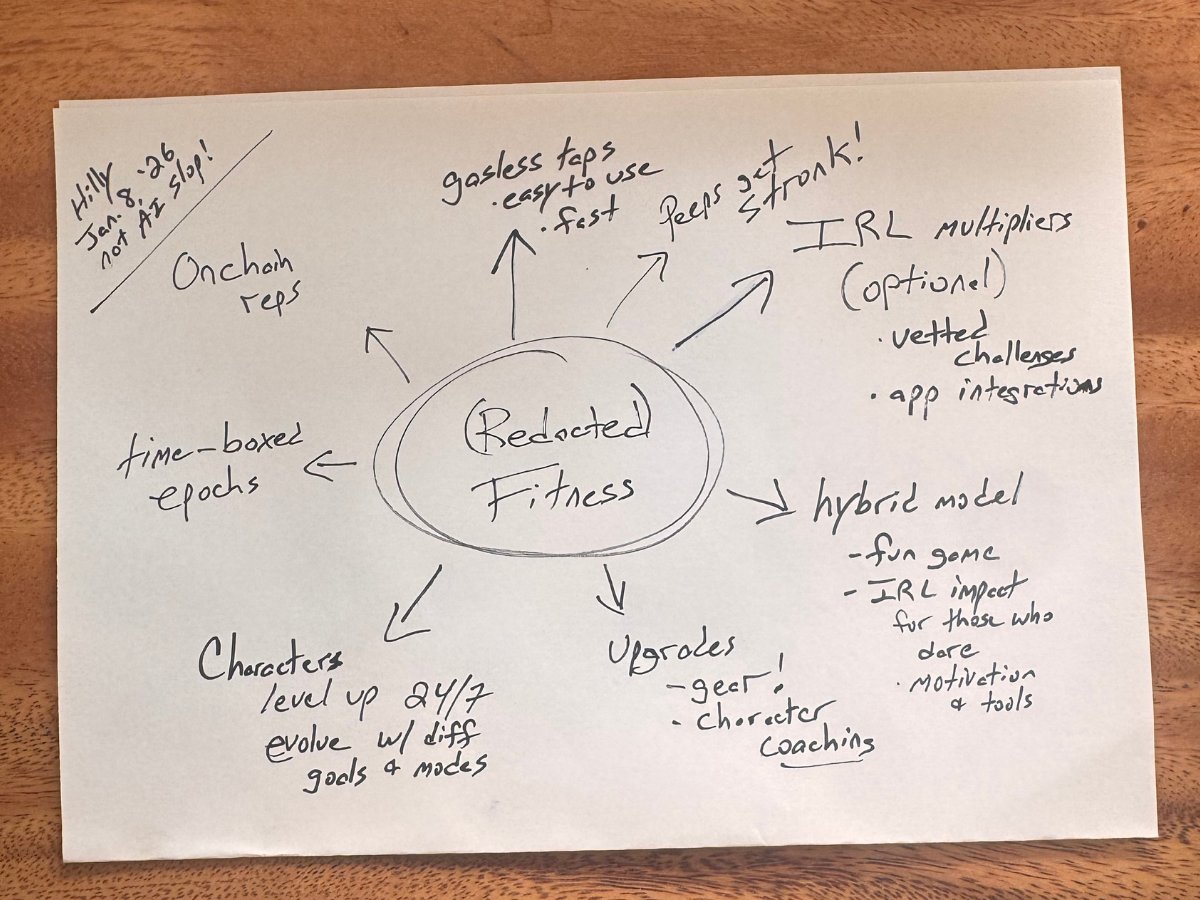 Hilly
Jan. 8, -26
not AI slop!
gasless taps
· easy to use
· fast
Peeps get
stronk!
IRL multipliers
(optional)
· vetted
challenges
· app integrations
Onchain
reps
(Redacted)
Fitness
time-boxed
epochs
hybrid model
- fun game
- IRL impact
for those who
dare
· motivation
& tools
Characters
level up 24/7
evolve w/ diff
goals & modes
Upgrades
- gear!
- character
coaching